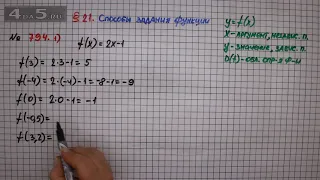 4
§ 21. Способы задания функции
№ 794. 1)
f(x) = 2x-1
f(3) = 2·3-1 = 5
f(-4) = 2·(-4)-1 = -8-1 = -9
f(0) = 2·0-1 = -1
f(-0,5) =
f(3,2) =
y = f(x)
x - аргумент, независ. п.
y - значение, завис. п.
D(f) - обл. опр-я ф-и